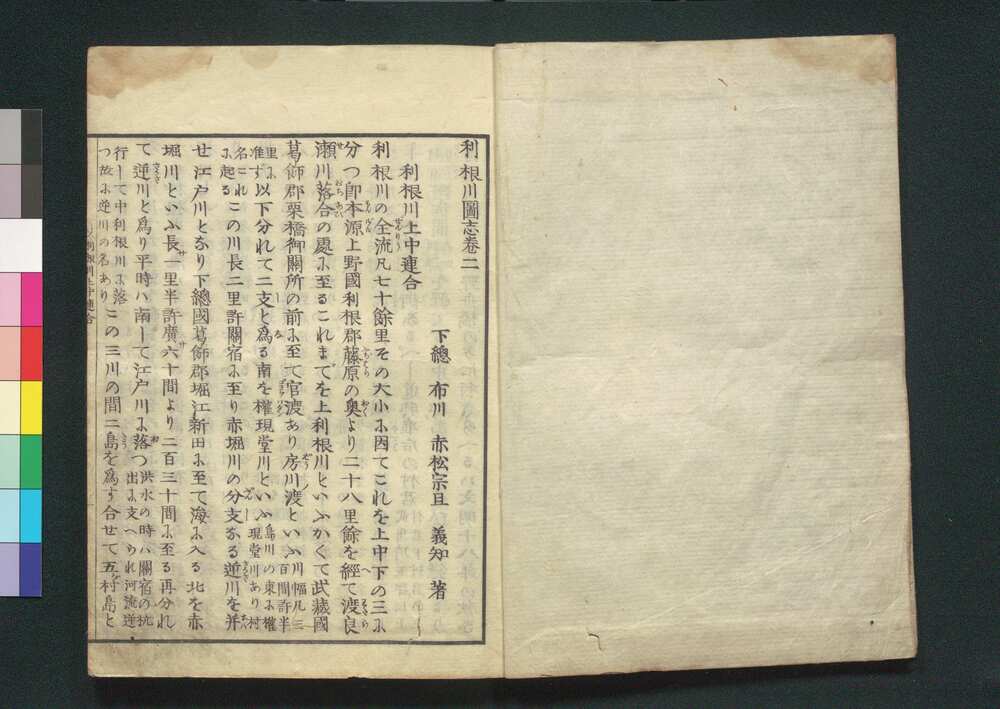 利根川圖志卷二
下總 布川 赤松宗旦 義知 著
利根川上中連合
利根川の全流凡七十餘里その大小に因てこれを上中下の三に
分つ卽本源上野國利根郡藤原の奥より二十八里餘を經て渡良
瀬川落合の處に至るこれまでを上利根川といふかくて武藏國
葛飾郡栗橋御關所の前に至て官渡あり房川渡といふ川幅凡三百間許半
里に准ず以下分れて二支と爲る南を權現堂川といふ島川の東に權現堂川あり村
名これに起るこの川長二里許關宿に至り赤堀川の分支なる逆川を并
せ江戸川となり下總國葛飾郡堀江新田に至て海に入る北を赤
堀川といふ長一里半許廣六十間より二百三十間に至る再分れ
て逆川と爲り平時ハ南して江戸川に落つ洪水の時ハ關宿の杭出に支へられ河流逆
行して中利根川に落つ故に逆川の名ありこの三川の間二島を爲す合せて五村島と